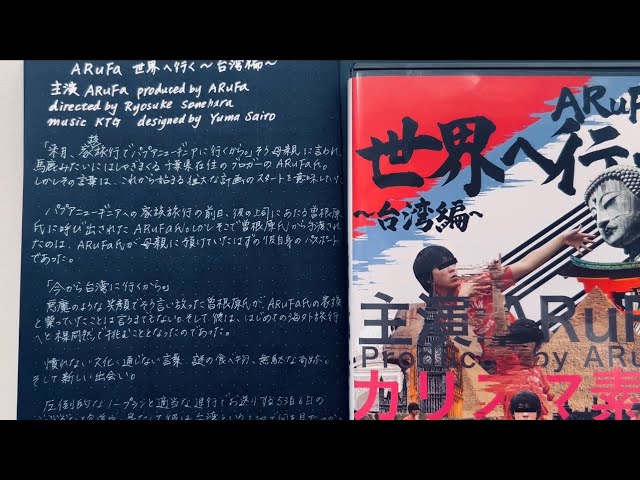 ARuFa 世界へ行く〜台湾編〜
主演 ARuFa produced by ARuFa
directed by Ryosuke Sonehara
music KTG designed by Yuma Sairo
「来月、家族旅行でパプアニューギニアに行くからね。」そう母親に言われ、
馬鹿みたいにはしゃぎまくる千葉県在住のブロガーのARuFa氏。
しかしその言葉は、これから始まる壮大な計画のスタートを意味していた。
パプアニューギニアへの家族旅行の前日、彼の上司にあたる曽根原
氏に呼び出されたARuFa氏。しかしそこで曽根原氏から手渡された
のは、ARuFa氏が母親に預けていたはずの彼自身のパスポート
であった。
「今から台湾に行くから。」
悪魔のような笑顔でそう言い放った曽根原氏が、ARuFa氏の家族
と繋っていたことは言うまでもない。そして彼は、はじめての海外旅行
へと挑むこととなったのであった。
慣れない文化、通じない言葉、謎の食べ物、無駄な
そして新しい出会い。
圧倒的なノープランと適当な進行でお送りする5泊6日の
ARuFa
世界へ行
〜台湾編〜
主演 ARuF
Produce by ARU
カリスマ素